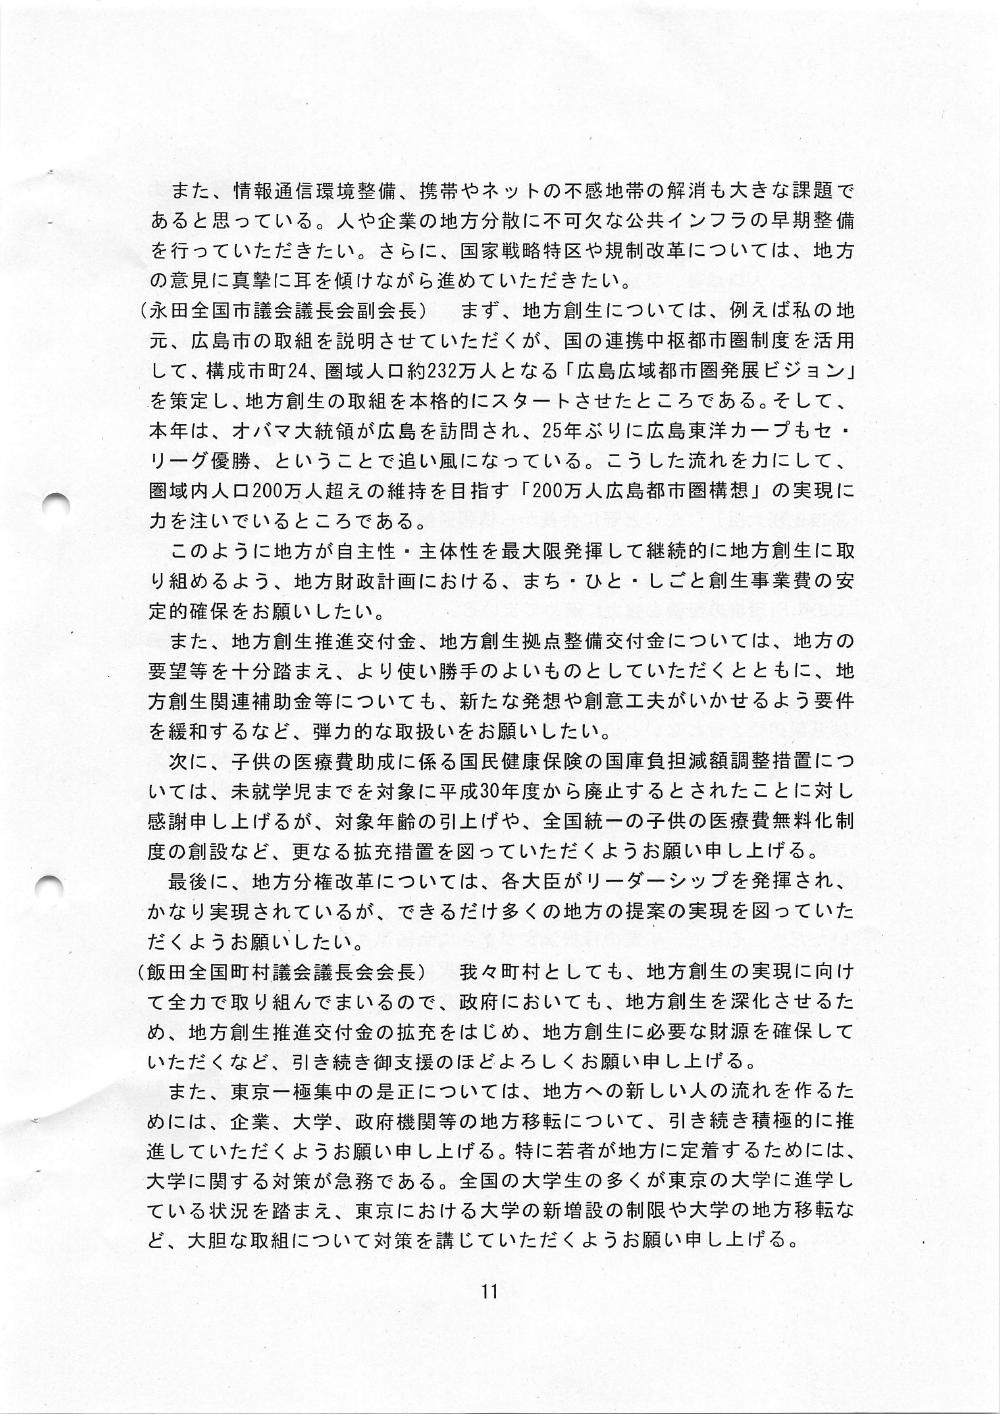 また、情報通信環境整備、携帯やネットの不感地帯の解消も大きな課題で
あると思っている。人や企業の地方分散に不可欠な公共インフラの早期整備
を行っていただきたい。さらに、国家戦略特区や規制改革については、地方
の意見に真摯に耳を傾けながら進めていただきたい。
（永田全国市議会議長会副会長）　まず、地方創生については、例えば私の地
元、広島市の取組を説明させていただくが、国の連携中枢都市圏制度を活用
して、構成市町24、圏域人口約232万人となる「広島広域都市圏発展ビジョン」
を策定し、地方創生の取組を本格的にスタートさせたところである。そして、
本年は、オバマ大統領が広島を訪問され、25年ぶりに広島東洋カープもセ・
リーグ優勝、ということで追い風になっている。こうした流れを力にして、
圏域内人口200万人超えの維持を目指す「200万人広島都市圏構想」の実現に
力を注いでいるところである。
このように地方が自主性・主体性を最大限発揮して継続的に地方創生に取
り組めるよう、地方財政計画における、まち・ひと・しごと創生事業費の安
定的確保をお願いしたい。
また、地方創生推進交付金、地方創生拠点整備交付金については、地方の
要望等を十分踏まえ、より使い勝手のよいものとしていただくとともに、地
方創生関連補助金等についても、新たな発想や創意工夫がいかせるよう要件
を緩和するなど、弾力的な取扱いをお願いしたい。
次に、子供の医療費助成に係る国民健康保険の国庫負担減額調整措置につ
いては、未就学児までを対象に平成30年度から廃止するとされたことに対し
感謝申し上げるが、対象年齢の引上げや、全国統一の子供の医療費無料化制
度の創設など、更なる拡充措置を図っていただくようお願い申し上げる。
最後に、地方分権改革については、各大臣がリーダーシップを発揮され、
かなり実現されているが、できるだけ多くの地方の提案の実現を図っていた
だくようお願いしたい。
（飯田全国町村議会議長会会長）　我々町村としても、地方創生の実現に向け
て全力で取り組んでまいるので、政府においても、地方創生を深化させるた
め、地方創生推進交付金の拡充をはじめ、地方創生に必要な財源を確保して
いただくなど、引き続き御支援のほどよろしくお願い申し上げる。
また、東京一極集中の是正については、地方への新しい人の流れを作るた
めには、企業、大学、政府機関等の地方移転について、引き続き積極的に推
進していただくようお願い申し上げる。特に若者が地方に定着するためには、
大学に関する対策が急務である。全国の大学生の多くが東京の大学に進学し
ている状況を踏まえ、東京における大学の新増設の制限や大学の地方移転な
ど、大胆な取組について対策を講じていただくようお願い申し上げる。
11